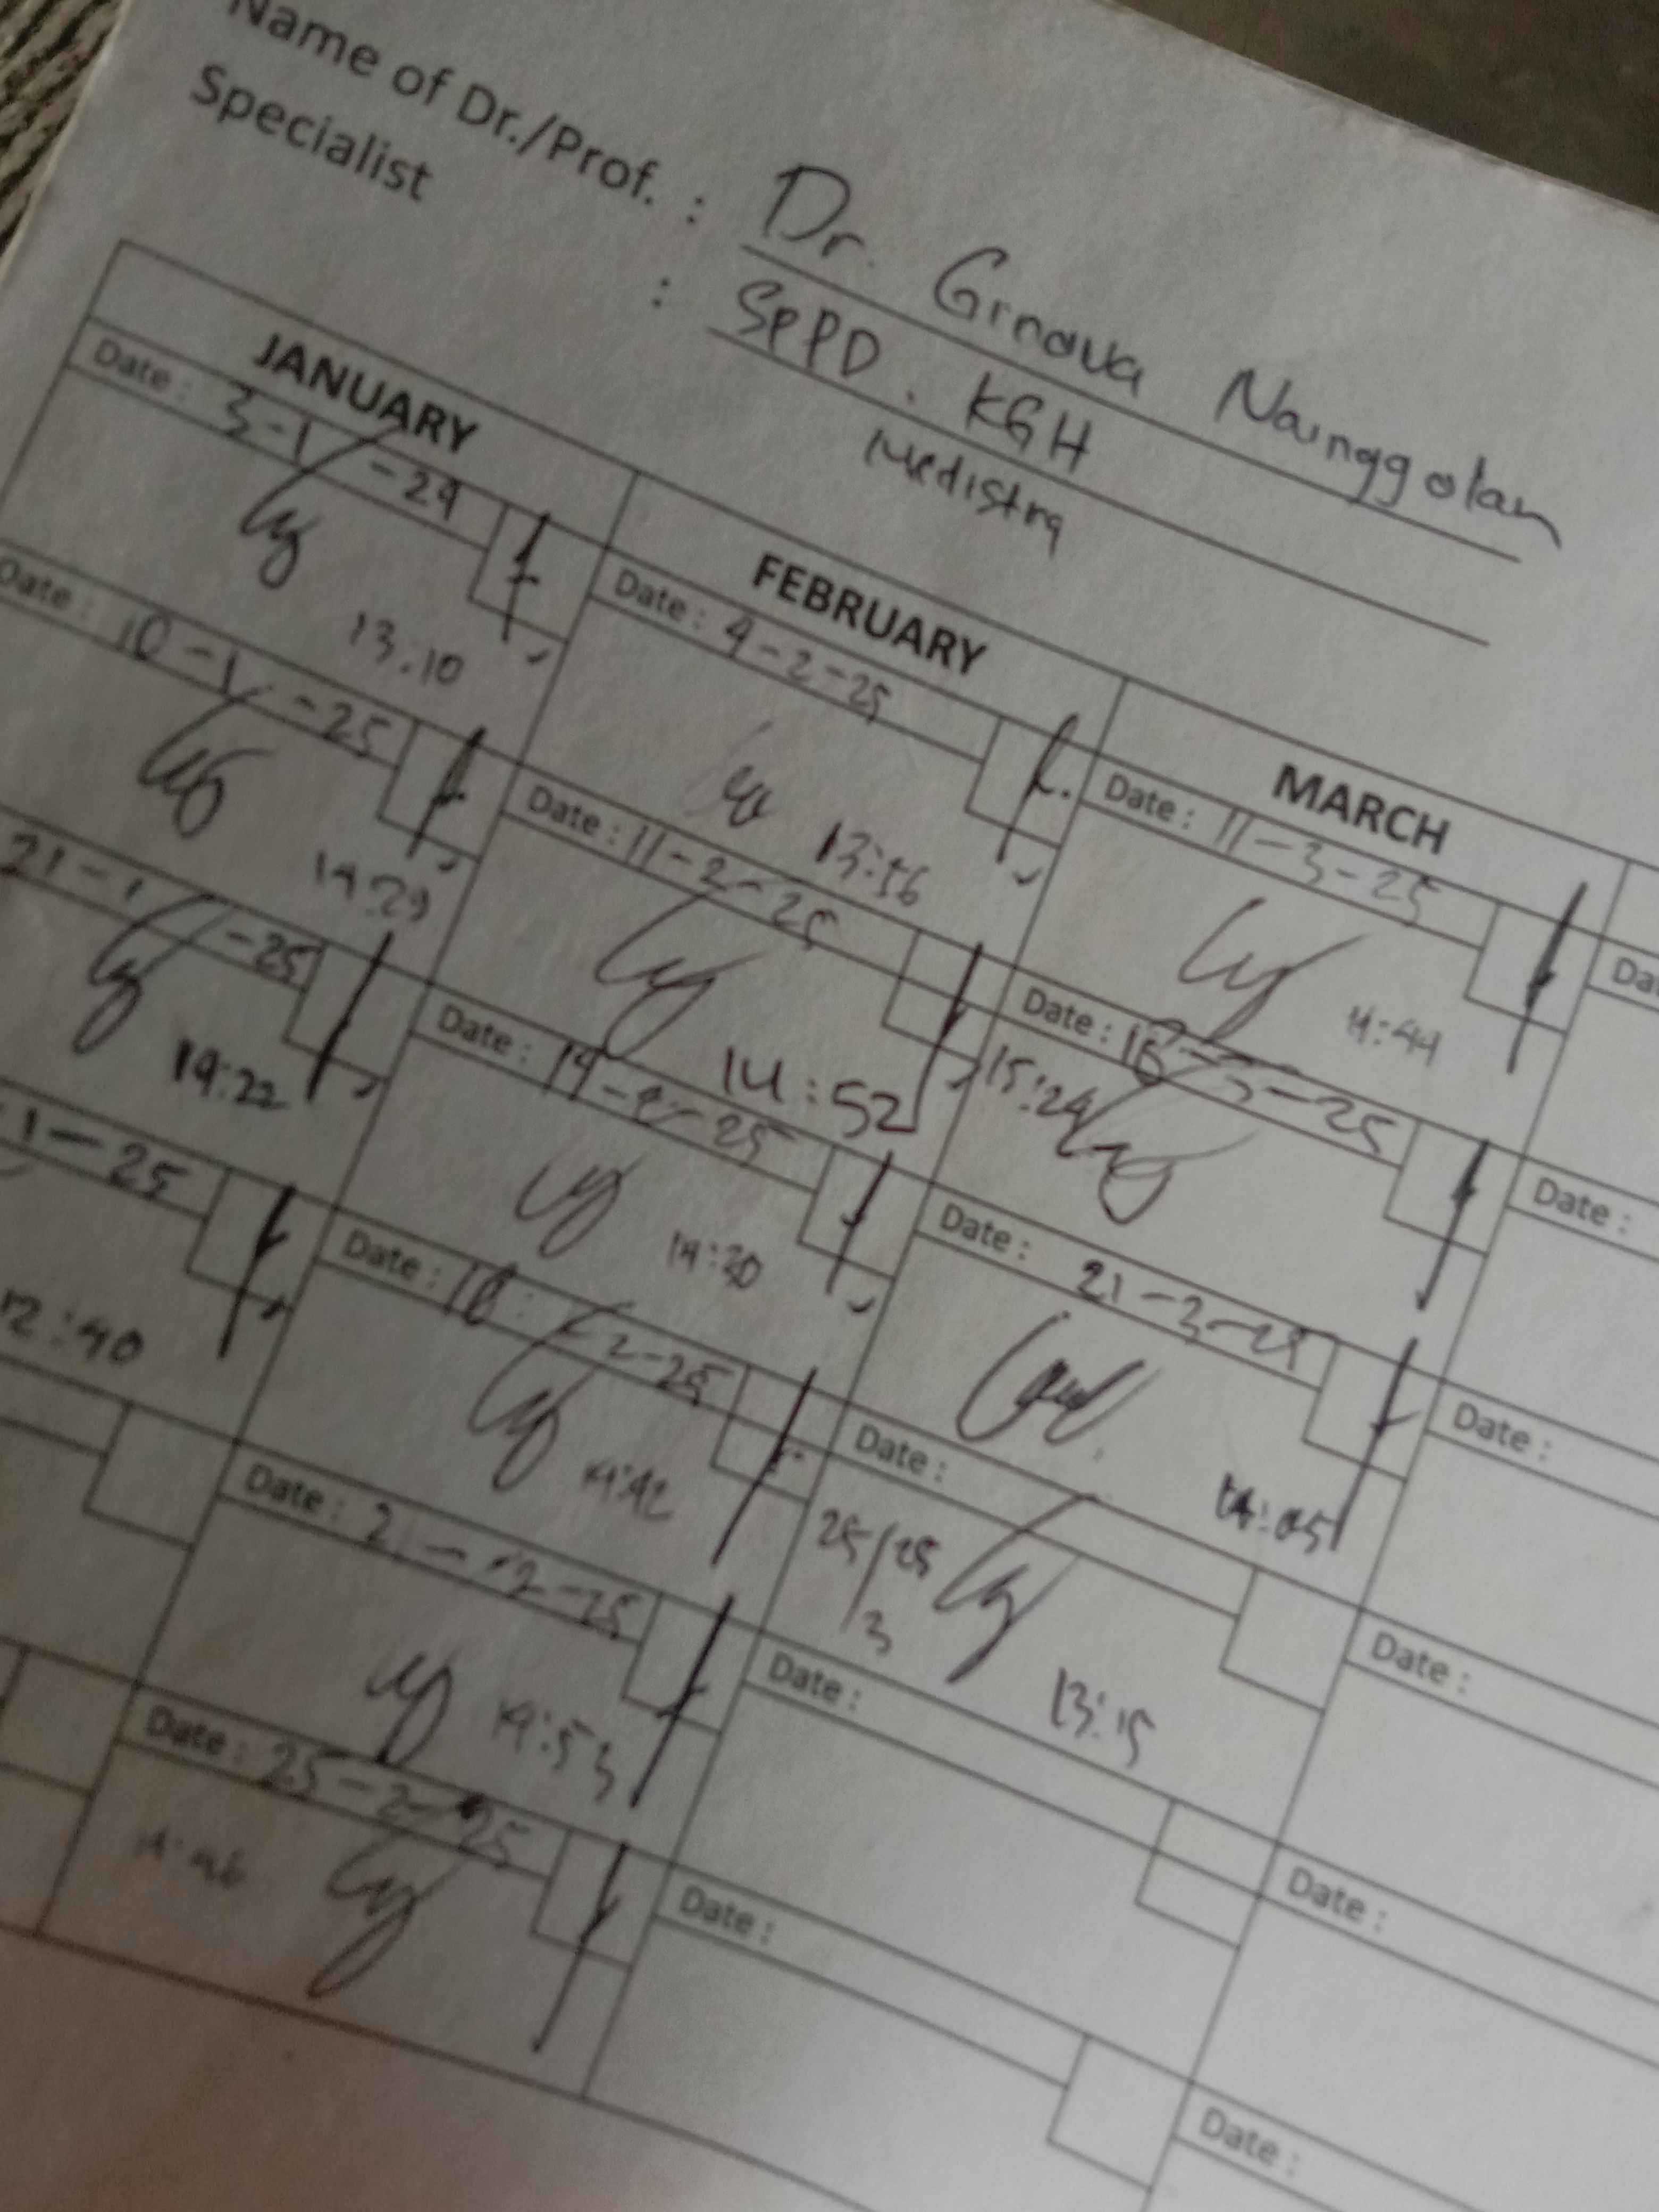 Name of Dr./Prof. : Dr. Ginova Nainggolan
Specialist : SpPD . KGH
Medistra
JANUARY
Date : 3-1-24
13.10
Date : 10-1-25
14:29
21-1-25
14:22
1-25
12:40
FEBRUARY
Date : 4-2-25
13:56
Date : 11-2-25
14:52
Date : 14-2-25
14:30
Date : 18-2-25
14:42
Date : 21-2-25
14:53
Date : 25-2-25
MARCH
Date : 11-3-25
Date : 18-3-25
15:24
Date : 21-3-25
14:05
Date :
25/25
3
13:15
Date :
Date :
Date :
Date :
Date :
Date :
Date :